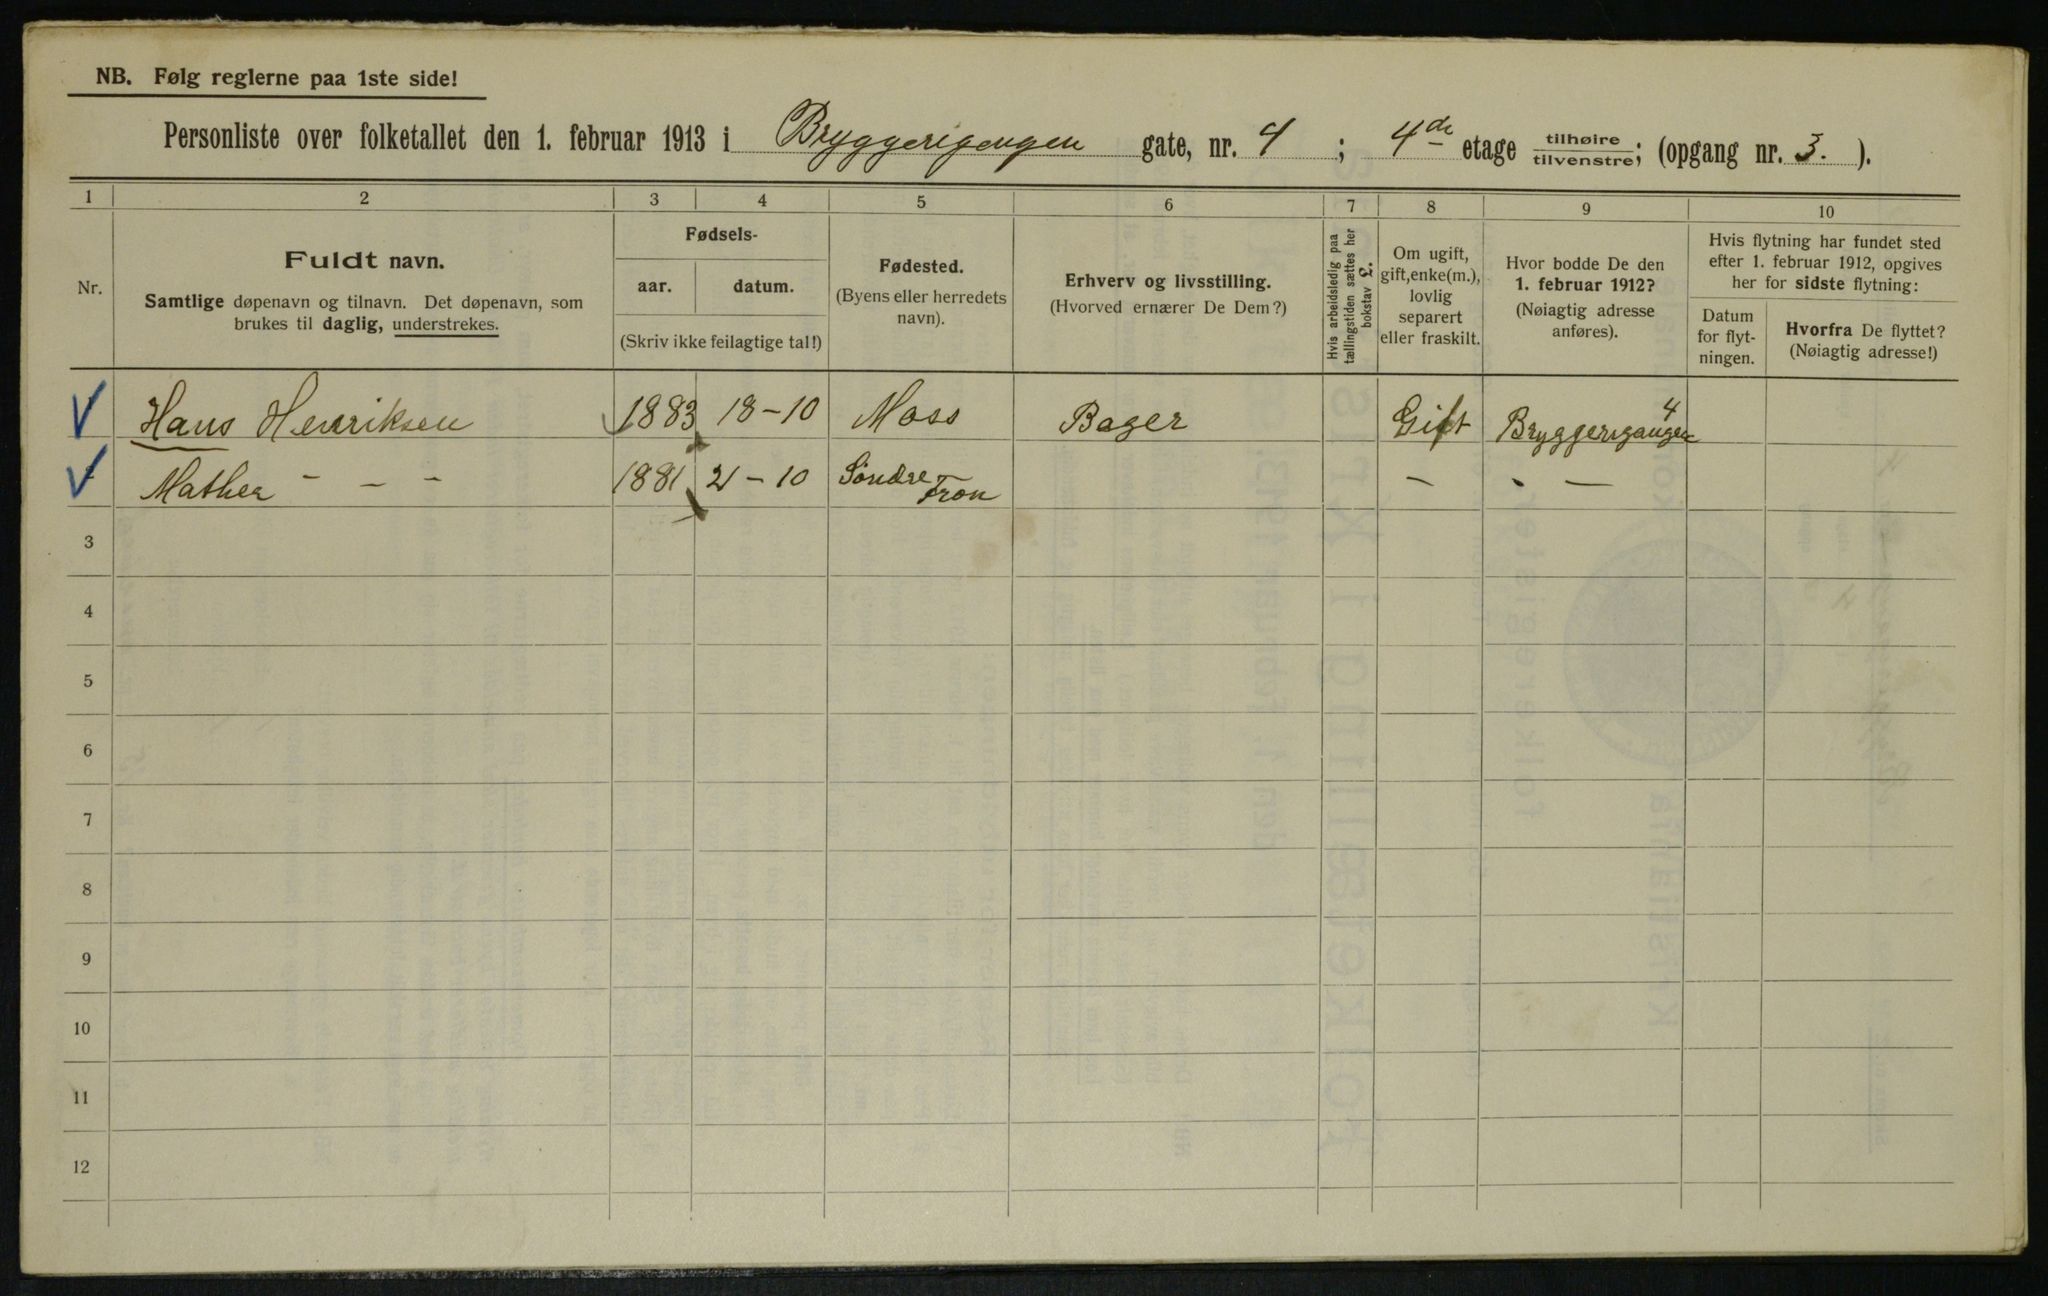 NB. Følg reglerne paa 1ste side!
Personliste over folketallet den 1. februar 1913 i Bryggerigangen gate, nr. 4 ; 4de etage tilhøire/tilvenstre; (opgang nr. 3. ).
1 2 3 4 5 6 7 8 9 10
Nr.
Fuldt navn.
Samtlige døpenavn og tilnavn. Det døpenavn, som
brukes til daglig, understrekes.
Fødsels-
aar. datum.
(Skriv ikke feilagtige tal!)
Fødested.
(Byens eller herredets
navn).
Erhverv og livsstilling.
(Hvorved ernærer De Dem?)
Hvis arbeidsledig paa
tællingstiden sættes her
bokstav L.
Om ugift,
gift, enke(m.),
lovlig
separert
eller fraskilt.
Hvor bodde De den
1. februar 1912?
(Nøiagtig adresse
anføres).
Hvis flytning har fundet sted
efter 1. februar 1912, opgives
her for sidste flytning:
Datum
for flyt-
ningen.
Hvorfra De flyttet?
(Nøiagtig adresse!)
Hans Henriksen 1883 18-10 Moss Bager Gift Bryggerigangen 4
Mathea - - - 1881 21-10 Søndre Fron - - -
3
4
5
6
7
8
9
10
11
12